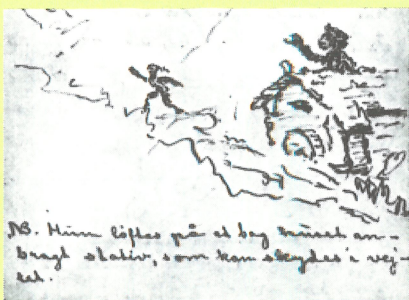 NB. Hun løftes på et bag muren an-
bragt stativ, som kan skydes i vej-
ret.